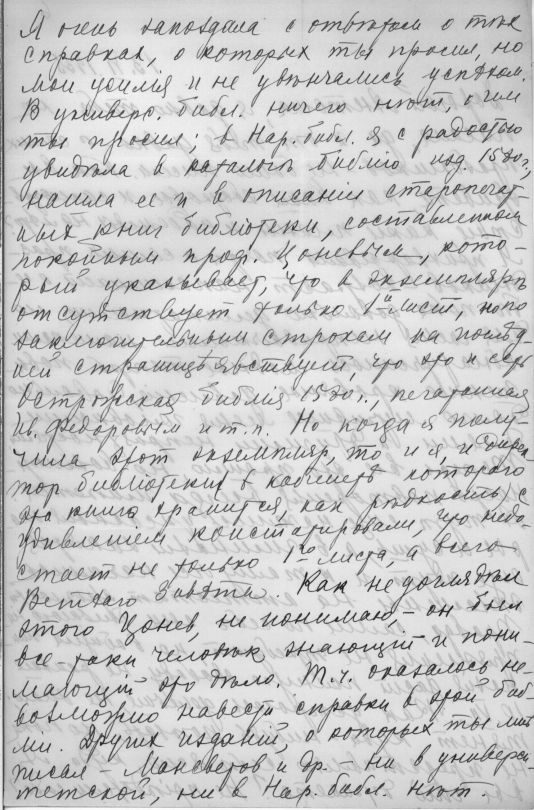 Я очень запоздала с отвѣтом о тѣх
справках, о которых ты просил, но
мои усилия и не увѣнчались успѣхом.
В универс. библ. ничего нѣт, о чем
ты просил; в Нар. библ. я с радостью
увидѣла в каталогѣ библію изд. 1580 г.,
нашла ее и в описаніи старопечат-
ных книг библіотеки, составленном
покойным проф. Цоневым, кото-
рый указывает, что в экземплярѣ
отсутствует только 1й лист, но по
заключительным строкам на послѣд-
ней страницѣ явствует, что это и есть
Острожская библія 1580 г., печатанная
Ив. Федоровым и т. п. Но когда я полу-
чила этот экземпляр, то и я, и дирек-
тор библіотеки (в кабинетѣ которого
эта книга хранится, как рѣдкость) с
удивленіем констатировали, что недо-
стает не только 1го листа, а всего
Ветхаго Завѣта. Как не доглядѣл
этого Цонев, не понимаю, – он был
все-таки человѣк знающій и пони-
мающій это дѣло. Т. ч. оказалось не-
возможно навести справки в этой биб-
ліи. Других изданій, о которых ты мнѣ
писал – Мансветов и др. – ни в универси-
тетской, ни в Нар. библ. нѣт.